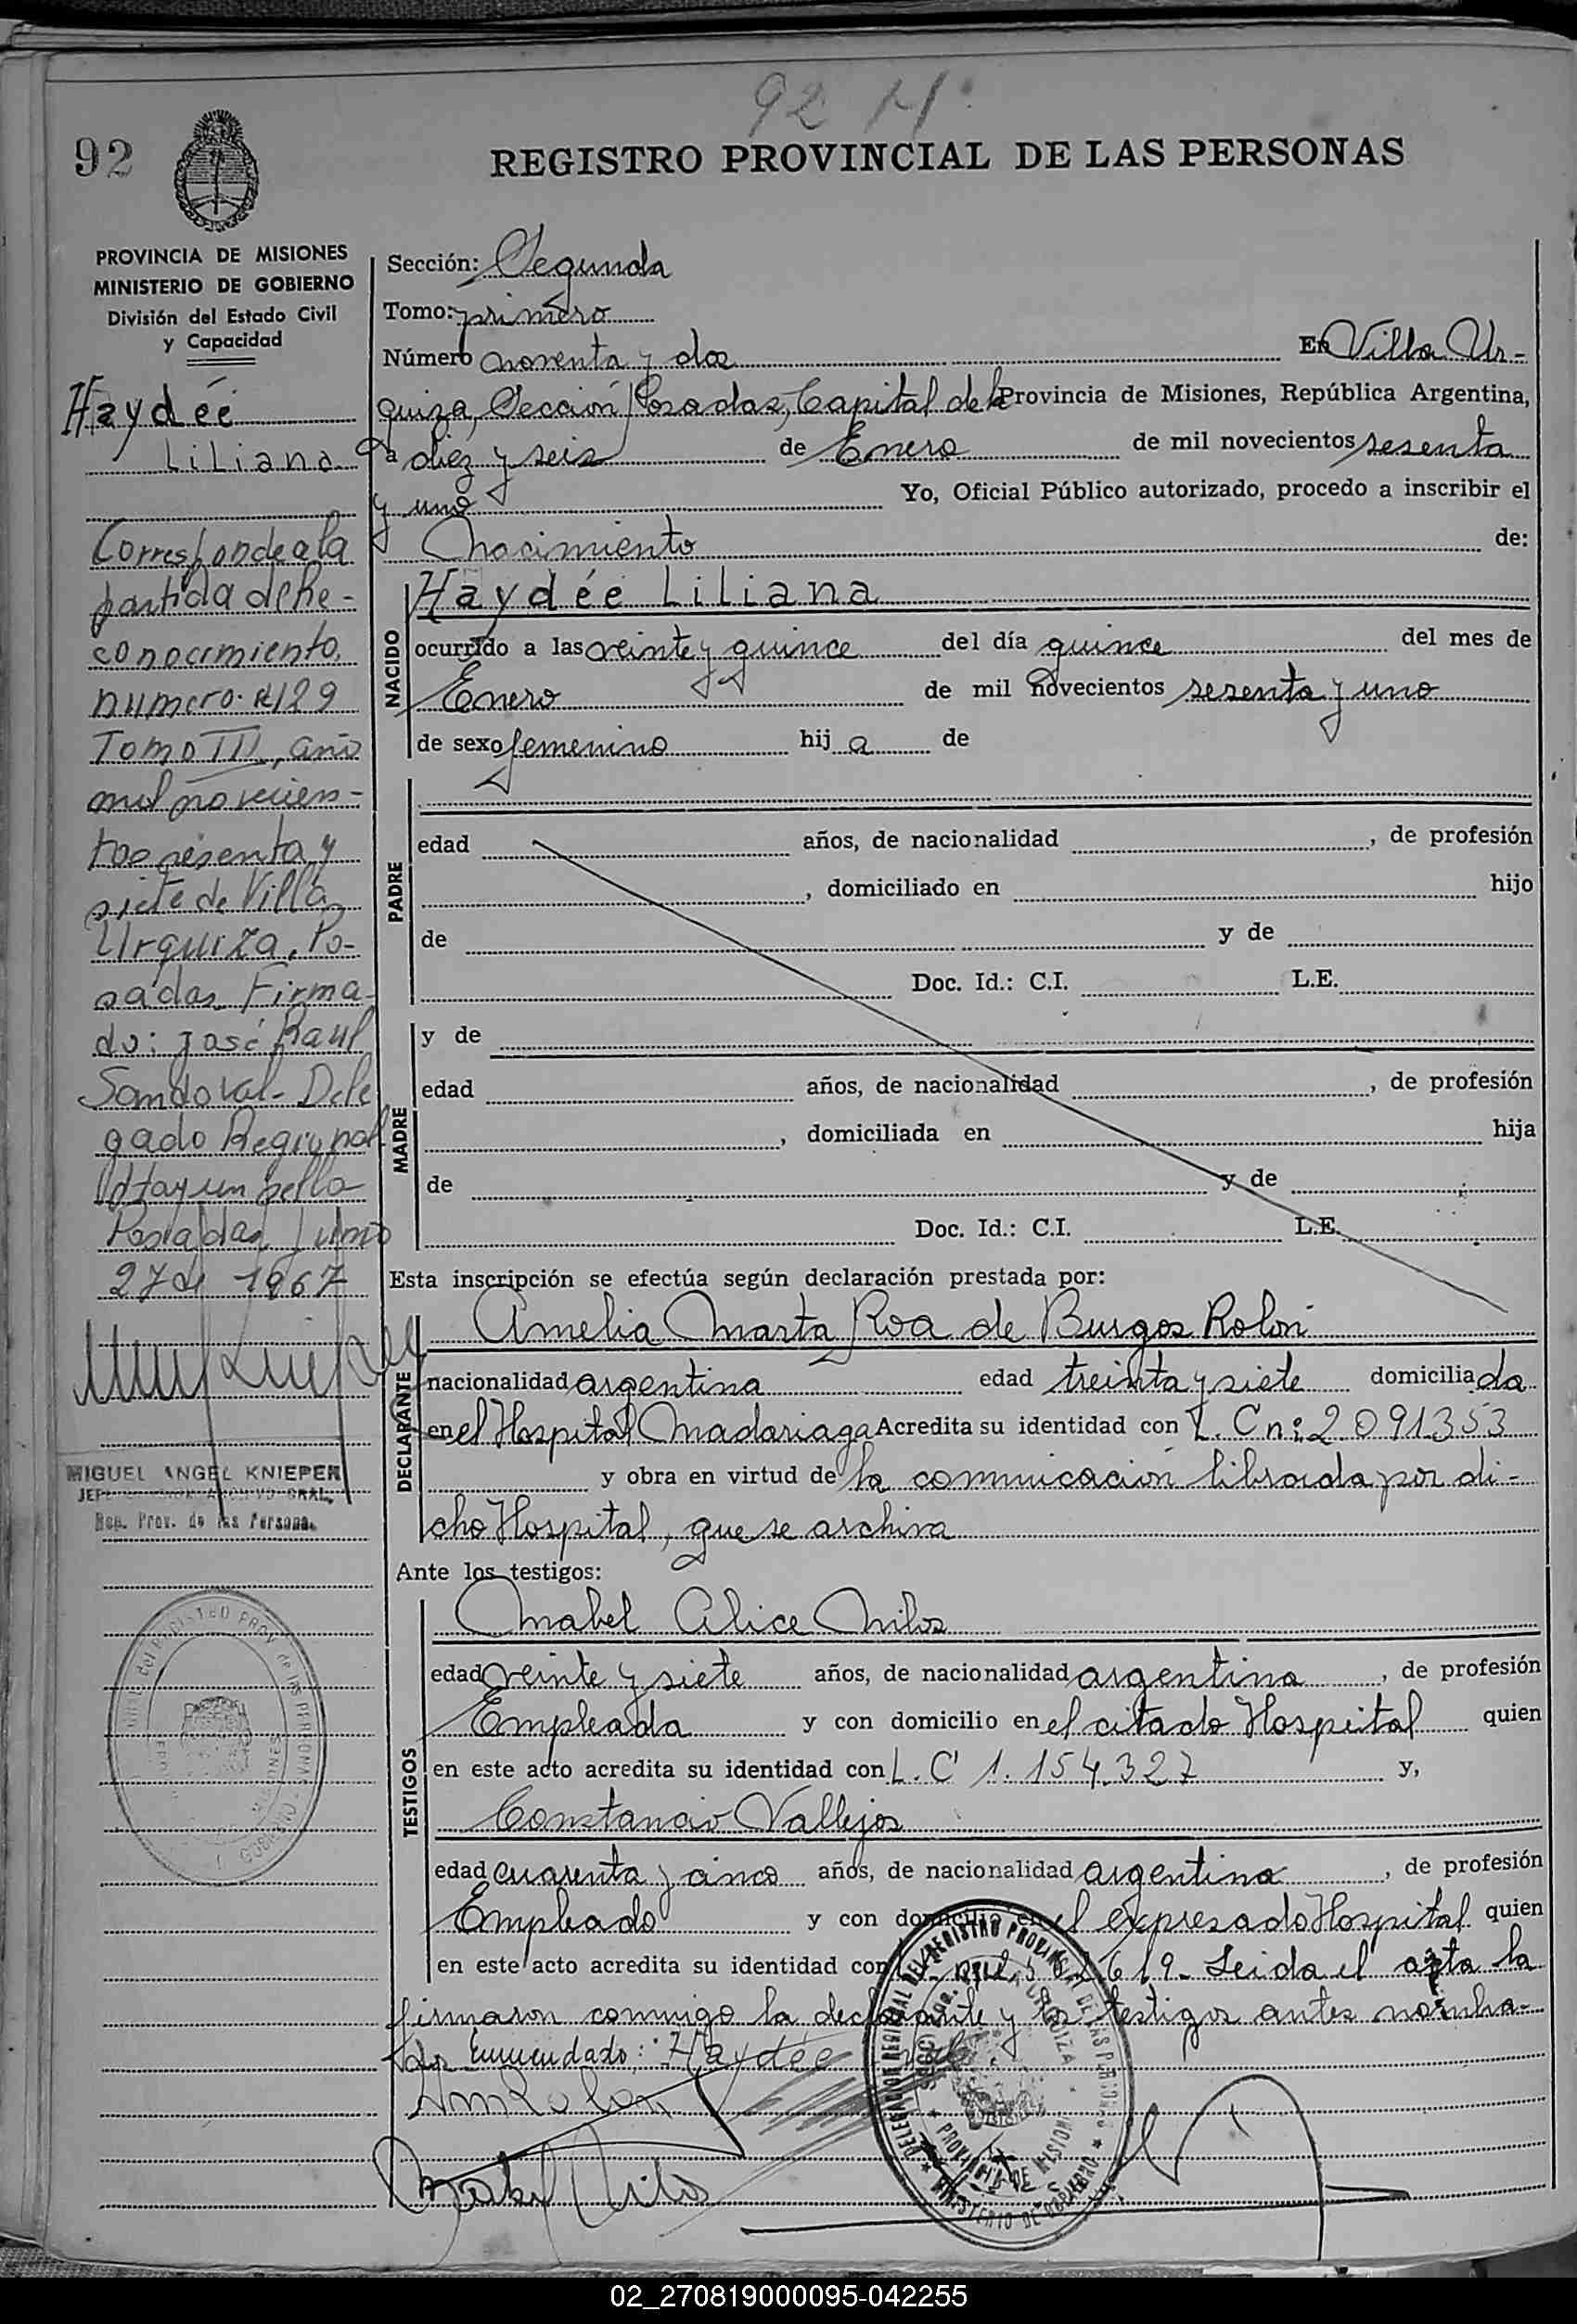 92 H
92
REGISTRO PROVINCIAL DE LAS PERSONAS
PROVINCIA DE MISIONES
MINISTERIO DE GOBIERNO
División del Estado Civil
y Capacidad
Haydée
Liliana
Corresponde a la
partida de Re-
conocimiento,
numero: 429
Tomo III, año
mil novecien-
tos sesenta y
siete de Villa
Urquiza, Po-
sadas. Firma-
do: José Raul
Sandoval - Dele
gado Regional
Hay un sello
Posadas Junio
27 de 1967
MIGUEL ANGEL KNIEPER
Reg. Prov. de las Persona.
Sección: Segunda
Tomo: primero
Número noventa y dos En Villa Ur-
quiza, Sección Posadas, Capital de la Provincia de Misiones, República Argentina,
a diez y seis de Enero de mil novecientos sesenta
y uno Yo, Oficial Público autorizado, procedo a inscribir el
Nacimiento de:
NACIDO
Haydée Liliana
ocurrido a las veinte y quince del día quince del mes de
Enero de mil novecientos sesenta y uno
de sexo femenino hij a de
PADRE
edad años, de nacionalidad , de profesión
, domiciliado en hijo
de y de
Doc. Id.: C.I. L.E.
MADRE
y de
edad años, de nacionalidad , de profesión
, domiciliada en hija
de y de
Doc. Id.: C.I. L.E.
Esta inscripción se efectúa según declaración prestada por:
DECLARANTE
Amelia Marta Roa de Burgos Rolon
nacionalidad argentina edad treinta y siete domicilia da
en el Hospital Madariaga Acredita su identidad con L. C n: 2091353
y obra en virtud de la comunicación librada por di-
cho Hospital, que se archiva
Ante los testigos:
TESTIGOS
Mabel Alice Milos
edad veinte y siete años, de nacionalidad argentina , de profesión
Empleada y con domicilio en el citado Hospital quien
en este acto acredita su identidad con L. C 1.154.327 y,
Constancio Vallejos
edad cuarenta y cinco años, de nacionalidad argentina , de profesión
Empleado y con domicilio en el expresado Hospital quien
en este acto acredita su identidad con 619 - Leida el acta la
firmaron conmigo la declarante y los testigos antes nombra-
dos Enmendado: Haydée vale
DELEGACION REGIONAL DEL REGISTRO PROVINCIAL DE LAS PERSONAS
PROVINCIA DE MISIONES
MINISTERIO DE GOBIERNO
02_270819000095-042255